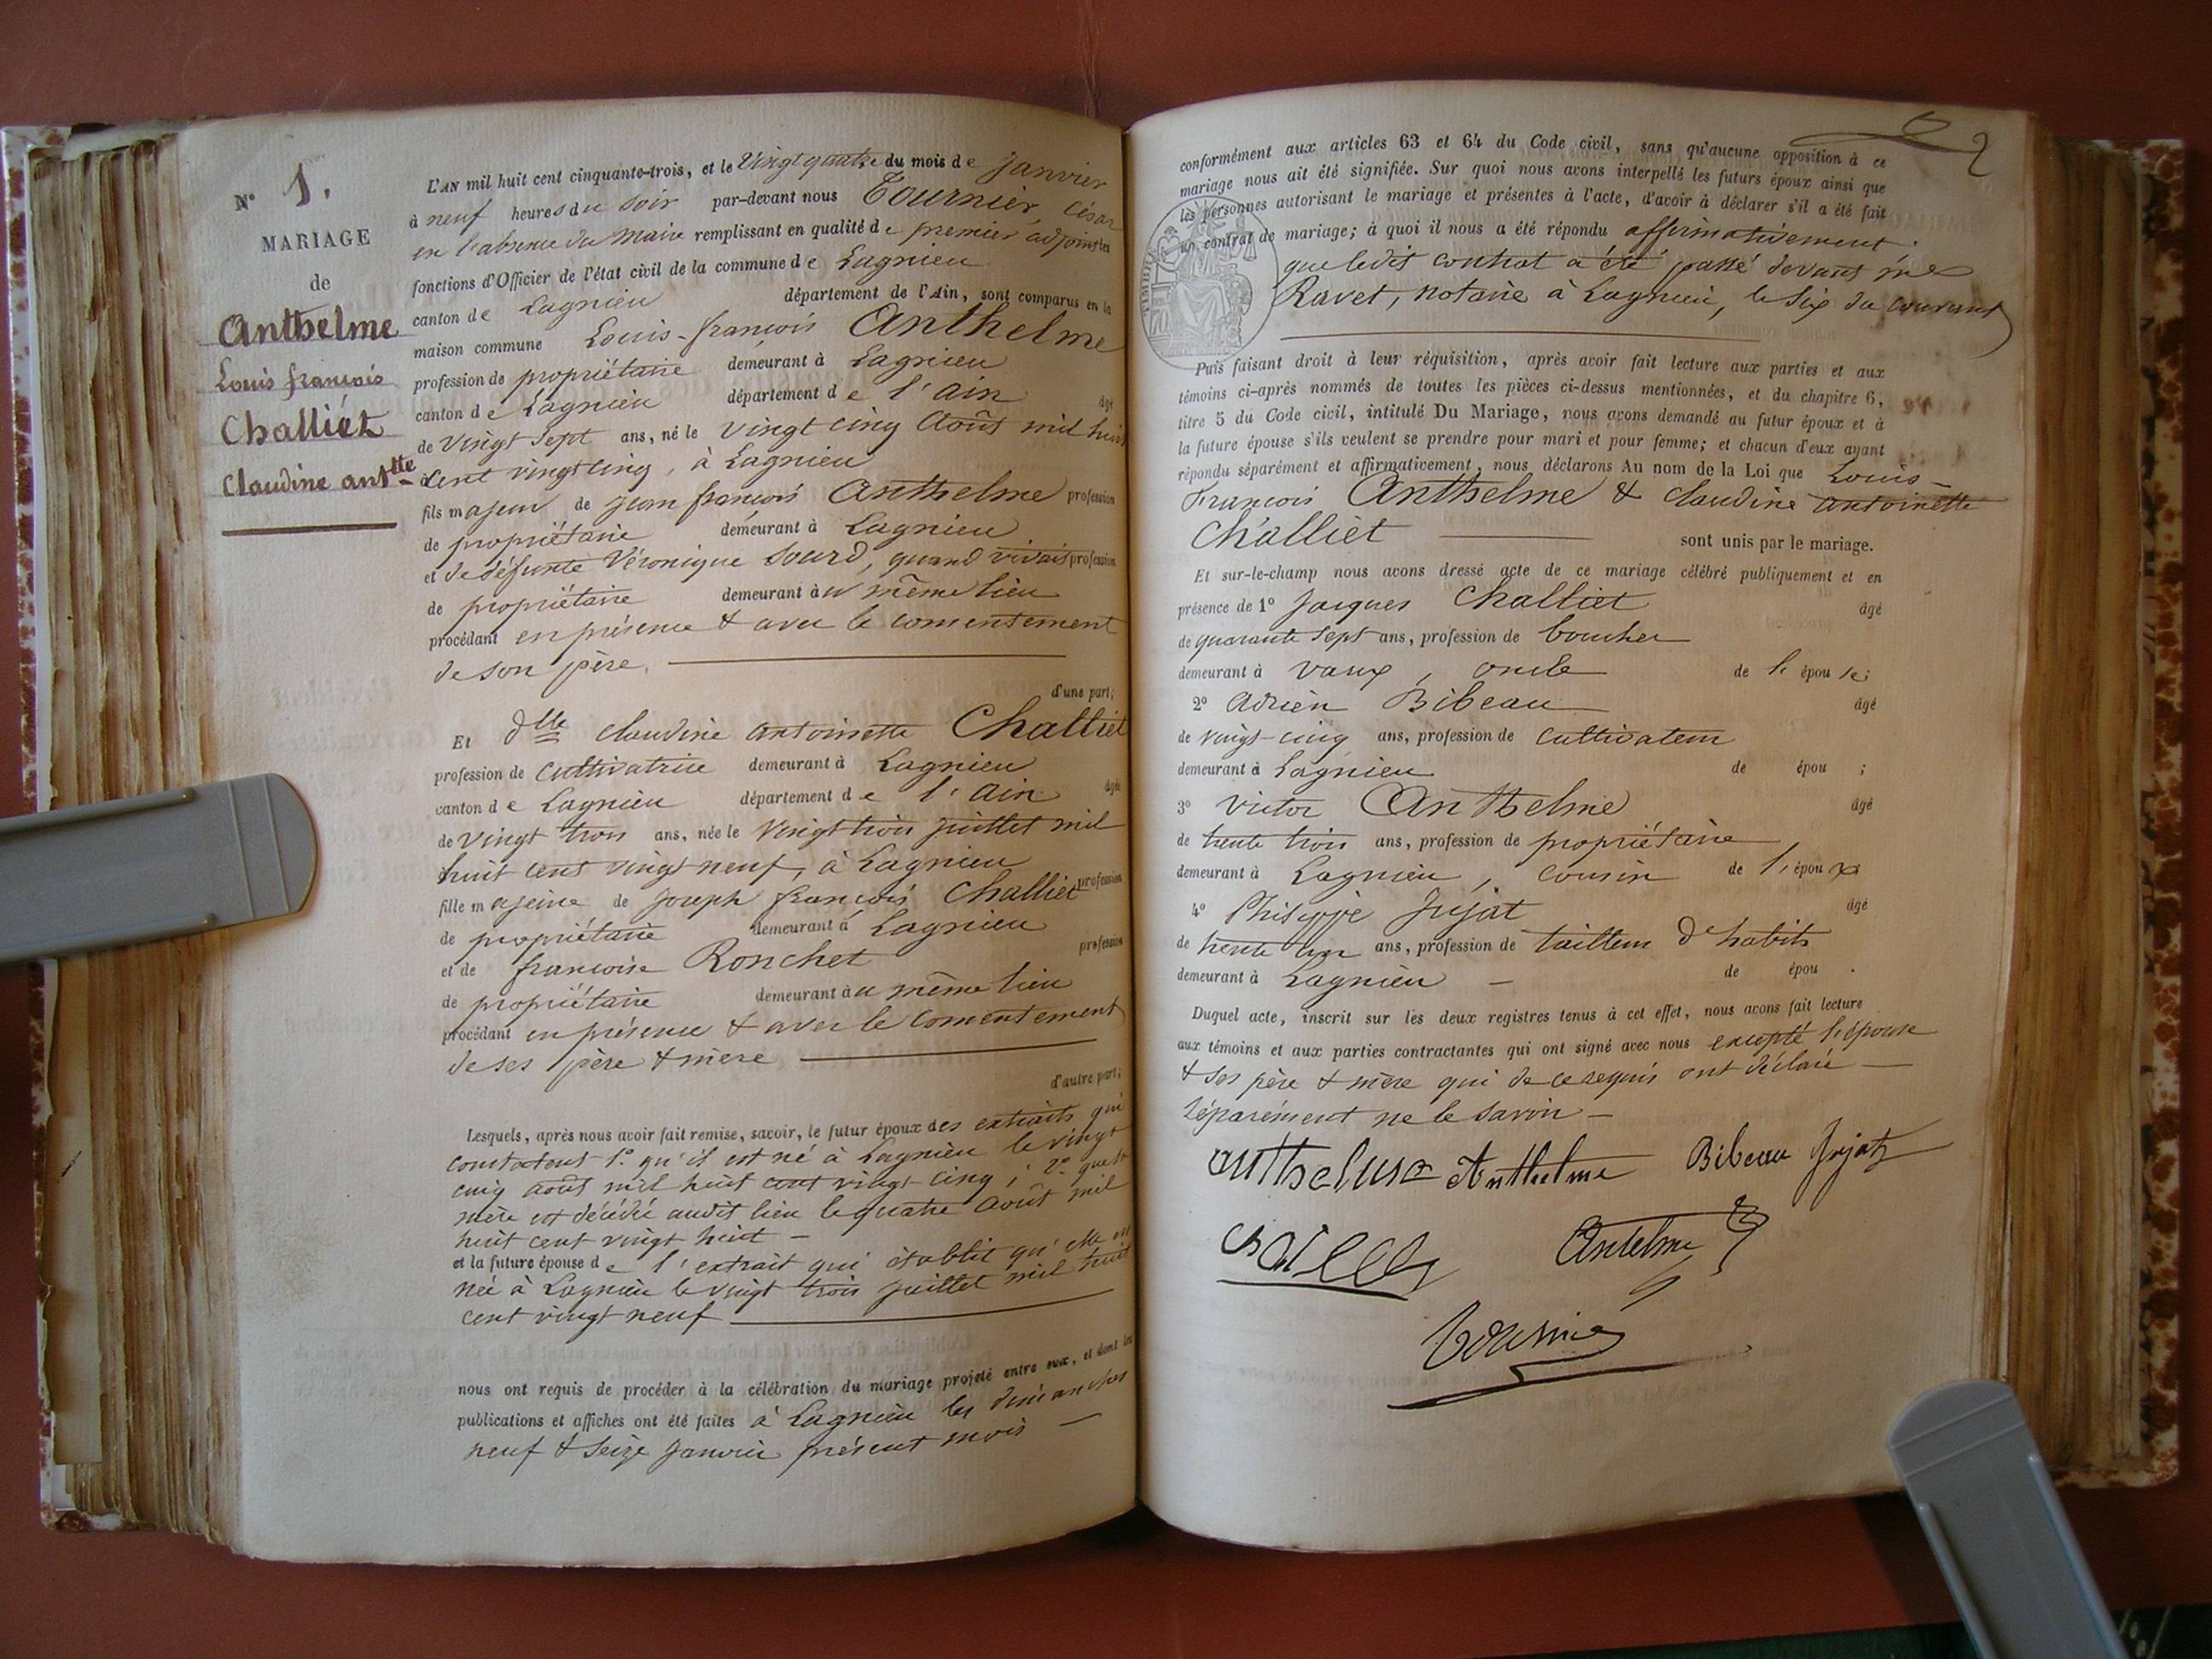 N° 1.
MARIAGE
de
Anthelme
Louis françois
Challiet
Claudine anttte
L'AN mil huit cent cinquante-trois, et le Vingt quatre du mois de janvier
à neuf heures du soir par-devant nous Tournier, César
en l'absence du Maire remplissant en qualité de premier adjoint les
fonctions d'Officier de l'état civil de la commune de Lagnieu
canton de Lagnieu département de l'Ain, sont comparus en la
maison commune Louis-françois Anthelme
profession de propriétaire demeurant à Lagnieu
canton de Lagnieu département de l'Ain âgé
de vingt sept ans, né le vingt cinq Août mil huit
cent vingt cinq, à Lagnieu
fils majeur de jean françois Anthelme profession
de propriétaire demeurant à Lagnieu
et de défunte Véronique Sourd, quand vivait profession
de propriétaire demeurant au même lieu
procédant en présence & avec le consentement
de son père.
d'une part;
Et dlle claudine antoinette Challiet
profession de cultivatrice demeurant à Lagnieu
canton de Lagnieu département de l'Ain âgée
de vingt trois ans, née le vingt trois juillet mil
huit cent vingt neuf, à Lagnieu
fille majeure de joseph françois Challiet profession
de propriétaire demeurant à Lagnieu
et de françoise Ronchet profession
de propriétaire demeurant au même lieu
procédant en présence & avec le consentement
de ses père & mère
d'autre part;
Lesquels, après nous avoir fait remise, savoir, le futur époux des extraits qui
constatent 1° qu'il est né à Lagnieu le vingt
cinq août mil huit cent vingt-cinq; 2° que sa
mère est décédée audit lieu le quatre août mil
huit cent vingt huit —
et la future épouse de l'extrait qui établit qu'elle est
née à Lagnieu le vingt trois juillet mil huit
cent vingt neuf
nous ont requis de procéder à la célébration du mariage projeté entre eux, et dont les
publications et affiches ont été faites à Lagnieu les dimanches
neuf & seize janvier présent mois —
2
conformément aux articles 63 et 64 du Code civil, sans qu'aucune opposition à ce
mariage nous ait été signifiée. Sur quoi nous avons interpellé les futurs époux ainsi que
les personnes autorisant le mariage et présentes à l'acte, d'avoir à déclarer s'il a été fait
un contrat de mariage; à quoi il nous a été répondu affirmativement.
que ledit contrat a été passé devant me
Ravet, notaire à Lagnieu, le six du courant
Puis faisant droit à leur réquisition, après avoir fait lecture aux parties et aux
témoins ci-après nommés de toutes les pièces ci-dessus mentionnées, et du chapitre 6,
titre 5 du Code civil, intitulé Du Mariage, nous avons demandé au futur époux et à
la future épouse s'ils veulent se prendre pour mari et pour femme; et chacun d'eux ayant
répondu séparément et affirmativement, nous déclarons Au nom de la Loi que Louis-
François Anthelme & claudine antoinette
Challiet sont unis par le mariage.
Et sur-le-champ nous avons dressé acte de ce mariage célébré publiquement et en
présence de 1° Jacques Challiet âgé
de quarante sept ans, profession de boucher
demeurant à Vaux, oncle de l'épouse;
2° Adrien Bibeau âgé
de vingt-cinq ans, profession de cultivateur
demeurant à Lagnieu de épou ;
3° Victor Anthelme âgé
de trente trois ans, profession de propriétaire
demeurant à Lagnieu, cousin de l'époux
4° Philippe Jujat âgé
de trente un ans, profession de tailleur d'habits
demeurant à Lagnieu — de épou .
Duquel acte, inscrit sur les deux registres tenus à cet effet, nous avons fait lecture
aux témoins et aux parties contractantes qui ont signé avec nous excepté l'épouse
& ses père & mère qui de ce requis ont déclaré —
séparément ne le savoir —
anthelme Anthelme Bibeau Jujat
Antelme
Tournier